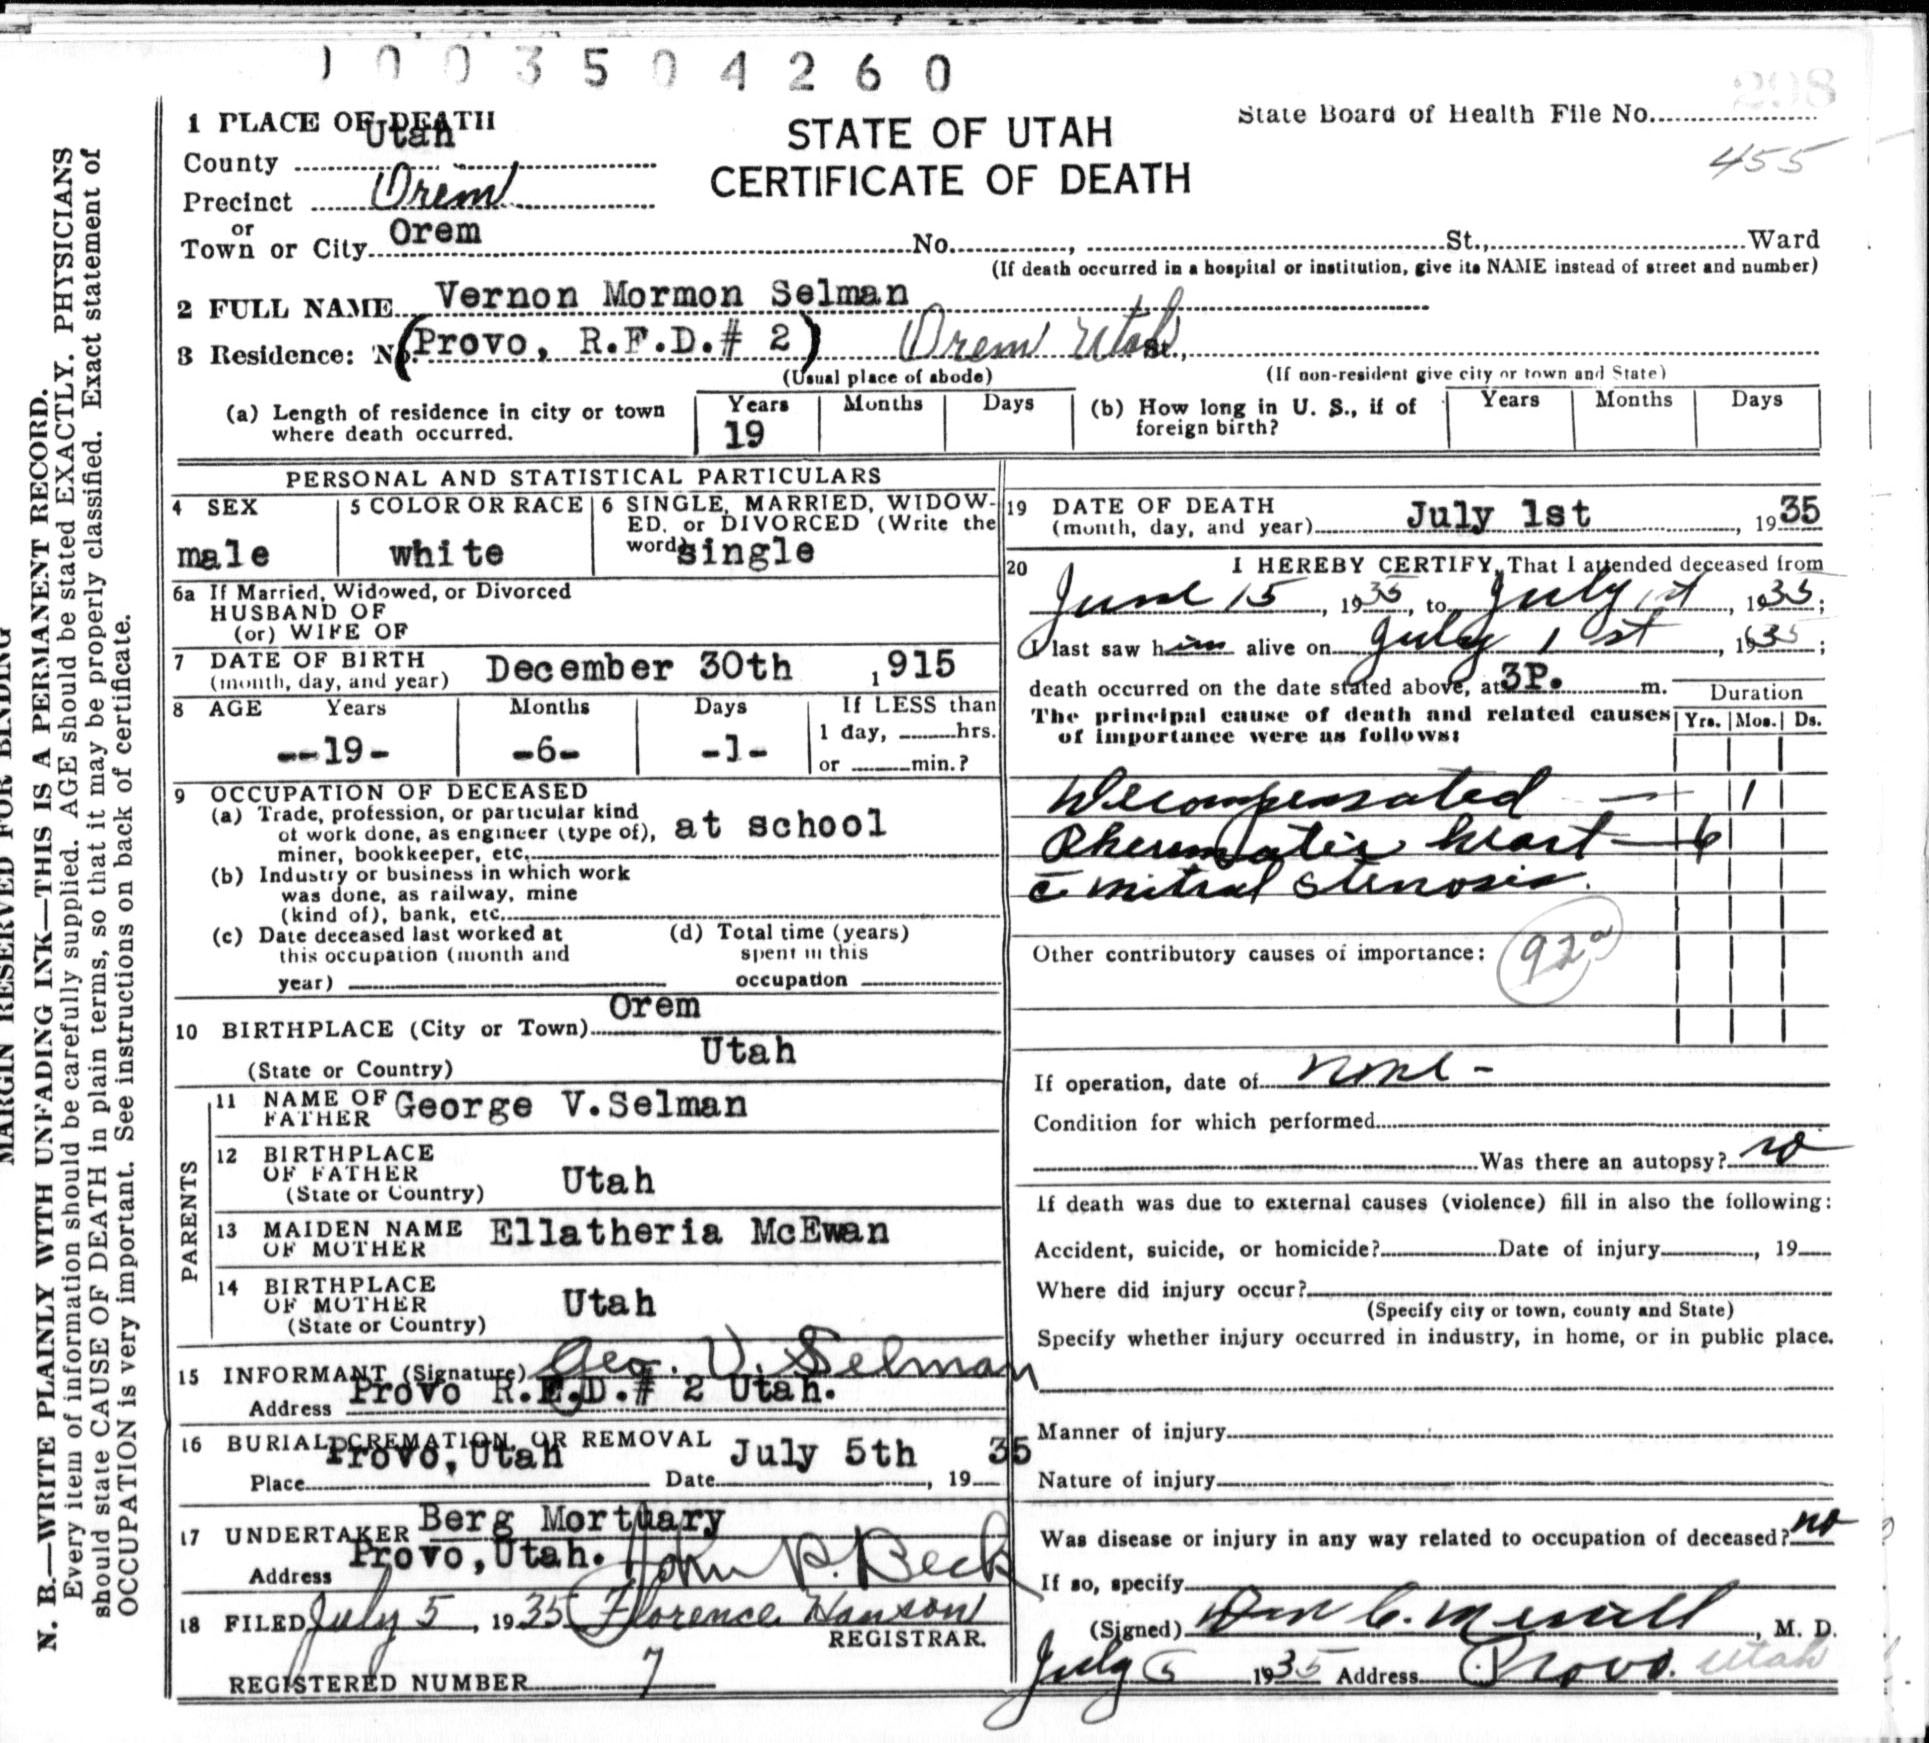 1003504260
298
State Board of Health File No.
455
STATE OF UTAH
CERTIFICATE OF DEATH
1 PLACE OF DEATH
County Utah
Precinct Orem
or
Town or City Orem No. , St., Ward
(If death occurred in a hospital or institution, give its NAME instead of street and number)
2 FULL NAME Vernon Mormon Selman
3 Residence: No. (Provo, R.F.D.# 2) Orem Utah St.,
(Usual place of abode) (If non-resident give city or town and State)
(a) Length of residence in city or town where death occurred. Years 19 Months Days
(b) How long in U. S., if of foreign birth? Years Months Days
PERSONAL AND STATISTICAL PARTICULARS
4 SEX male
5 COLOR OR RACE white
6 SINGLE, MARRIED, WIDOW-
ED, or DIVORCED (Write the
word) single
6a If Married, Widowed, or Divorced
HUSBAND OF
(or) WIFE OF
7 DATE OF BIRTH
(month, day, and year) December 30th 1915
8 AGE Years Months Days If LESS than
--19- -6- -1- 1 day, hrs.
or min.?
9 OCCUPATION OF DECEASED
(a) Trade, profession, or particular kind
of work done, as engineer (type of), at school
miner, bookkeeper, etc.
(b) Industry or business in which work
was done, as railway, mine
(kind of), bank, etc.
(c) Date deceased last worked at
this occupation (month and
year)
(d) Total time (years)
spent in this
occupation
10 BIRTHPLACE (City or Town) Orem
(State or Country) Utah
PARENTS
11 NAME OF
FATHER George V.Selman
12 BIRTHPLACE
OF FATHER
(State or Country) Utah
13 MAIDEN NAME
OF MOTHER Ellatheria McEwan
14 BIRTHPLACE
OF MOTHER
(State or Country) Utah
15 INFORMANT (Signature) Geo. V. Selman
Address Provo R.F.D.# 2 Utah.
16 BURIAL, CREMATION, OR REMOVAL
Place Provo, Utah Date July 5th , 1935
17 UNDERTAKER Berg Mortuary
Address Provo, Utah. John P. Beck
18 FILED July 5, 1935 Florence Hanson
REGISTRAR.
REGISTERED NUMBER 7
19 DATE OF DEATH
(month, day, and year) July 1st , 1935
20 I HEREBY CERTIFY, That I attended deceased from
June 15, 1935, to July 1st, 1935;
I last saw him alive on July 1st, 1935;
death occurred on the date stated above, at 3P. m.
Duration
The principal cause of death and related causes Yrs. Mos. Ds.
of importance were as follows:
Decompensated — 1
Rheumatic heart — 6
c̄ mitral stenosis.
Other contributory causes of importance: 92a
If operation, date of none -
Condition for which performed
Was there an autopsy? no
If death was due to external causes (violence) fill in also the following:
Accident, suicide, or homicide? Date of injury , 19
Where did injury occur?
(Specify city or town, county and State)
Specify whether injury occurred in industry, in home, or in public place.
Manner of injury
Nature of injury
Was disease or injury in any way related to occupation of deceased? no
If so, specify
(Signed) Don C. Merrill, M. D.
July 5 1935 Address Provo. Utah
MARGIN RESERVED FOR BINDING
N. B.—WRITE PLAINLY WITH UNFADING INK—THIS IS A PERMANENT RECORD.
Every item of information should be carefully supplied. AGE should be stated EXACTLY. PHYSICIANS
should state CAUSE OF DEATH in plain terms, so that it may be properly classified. Exact statement of
OCCUPATION is very important. See instructions on back of certificate.